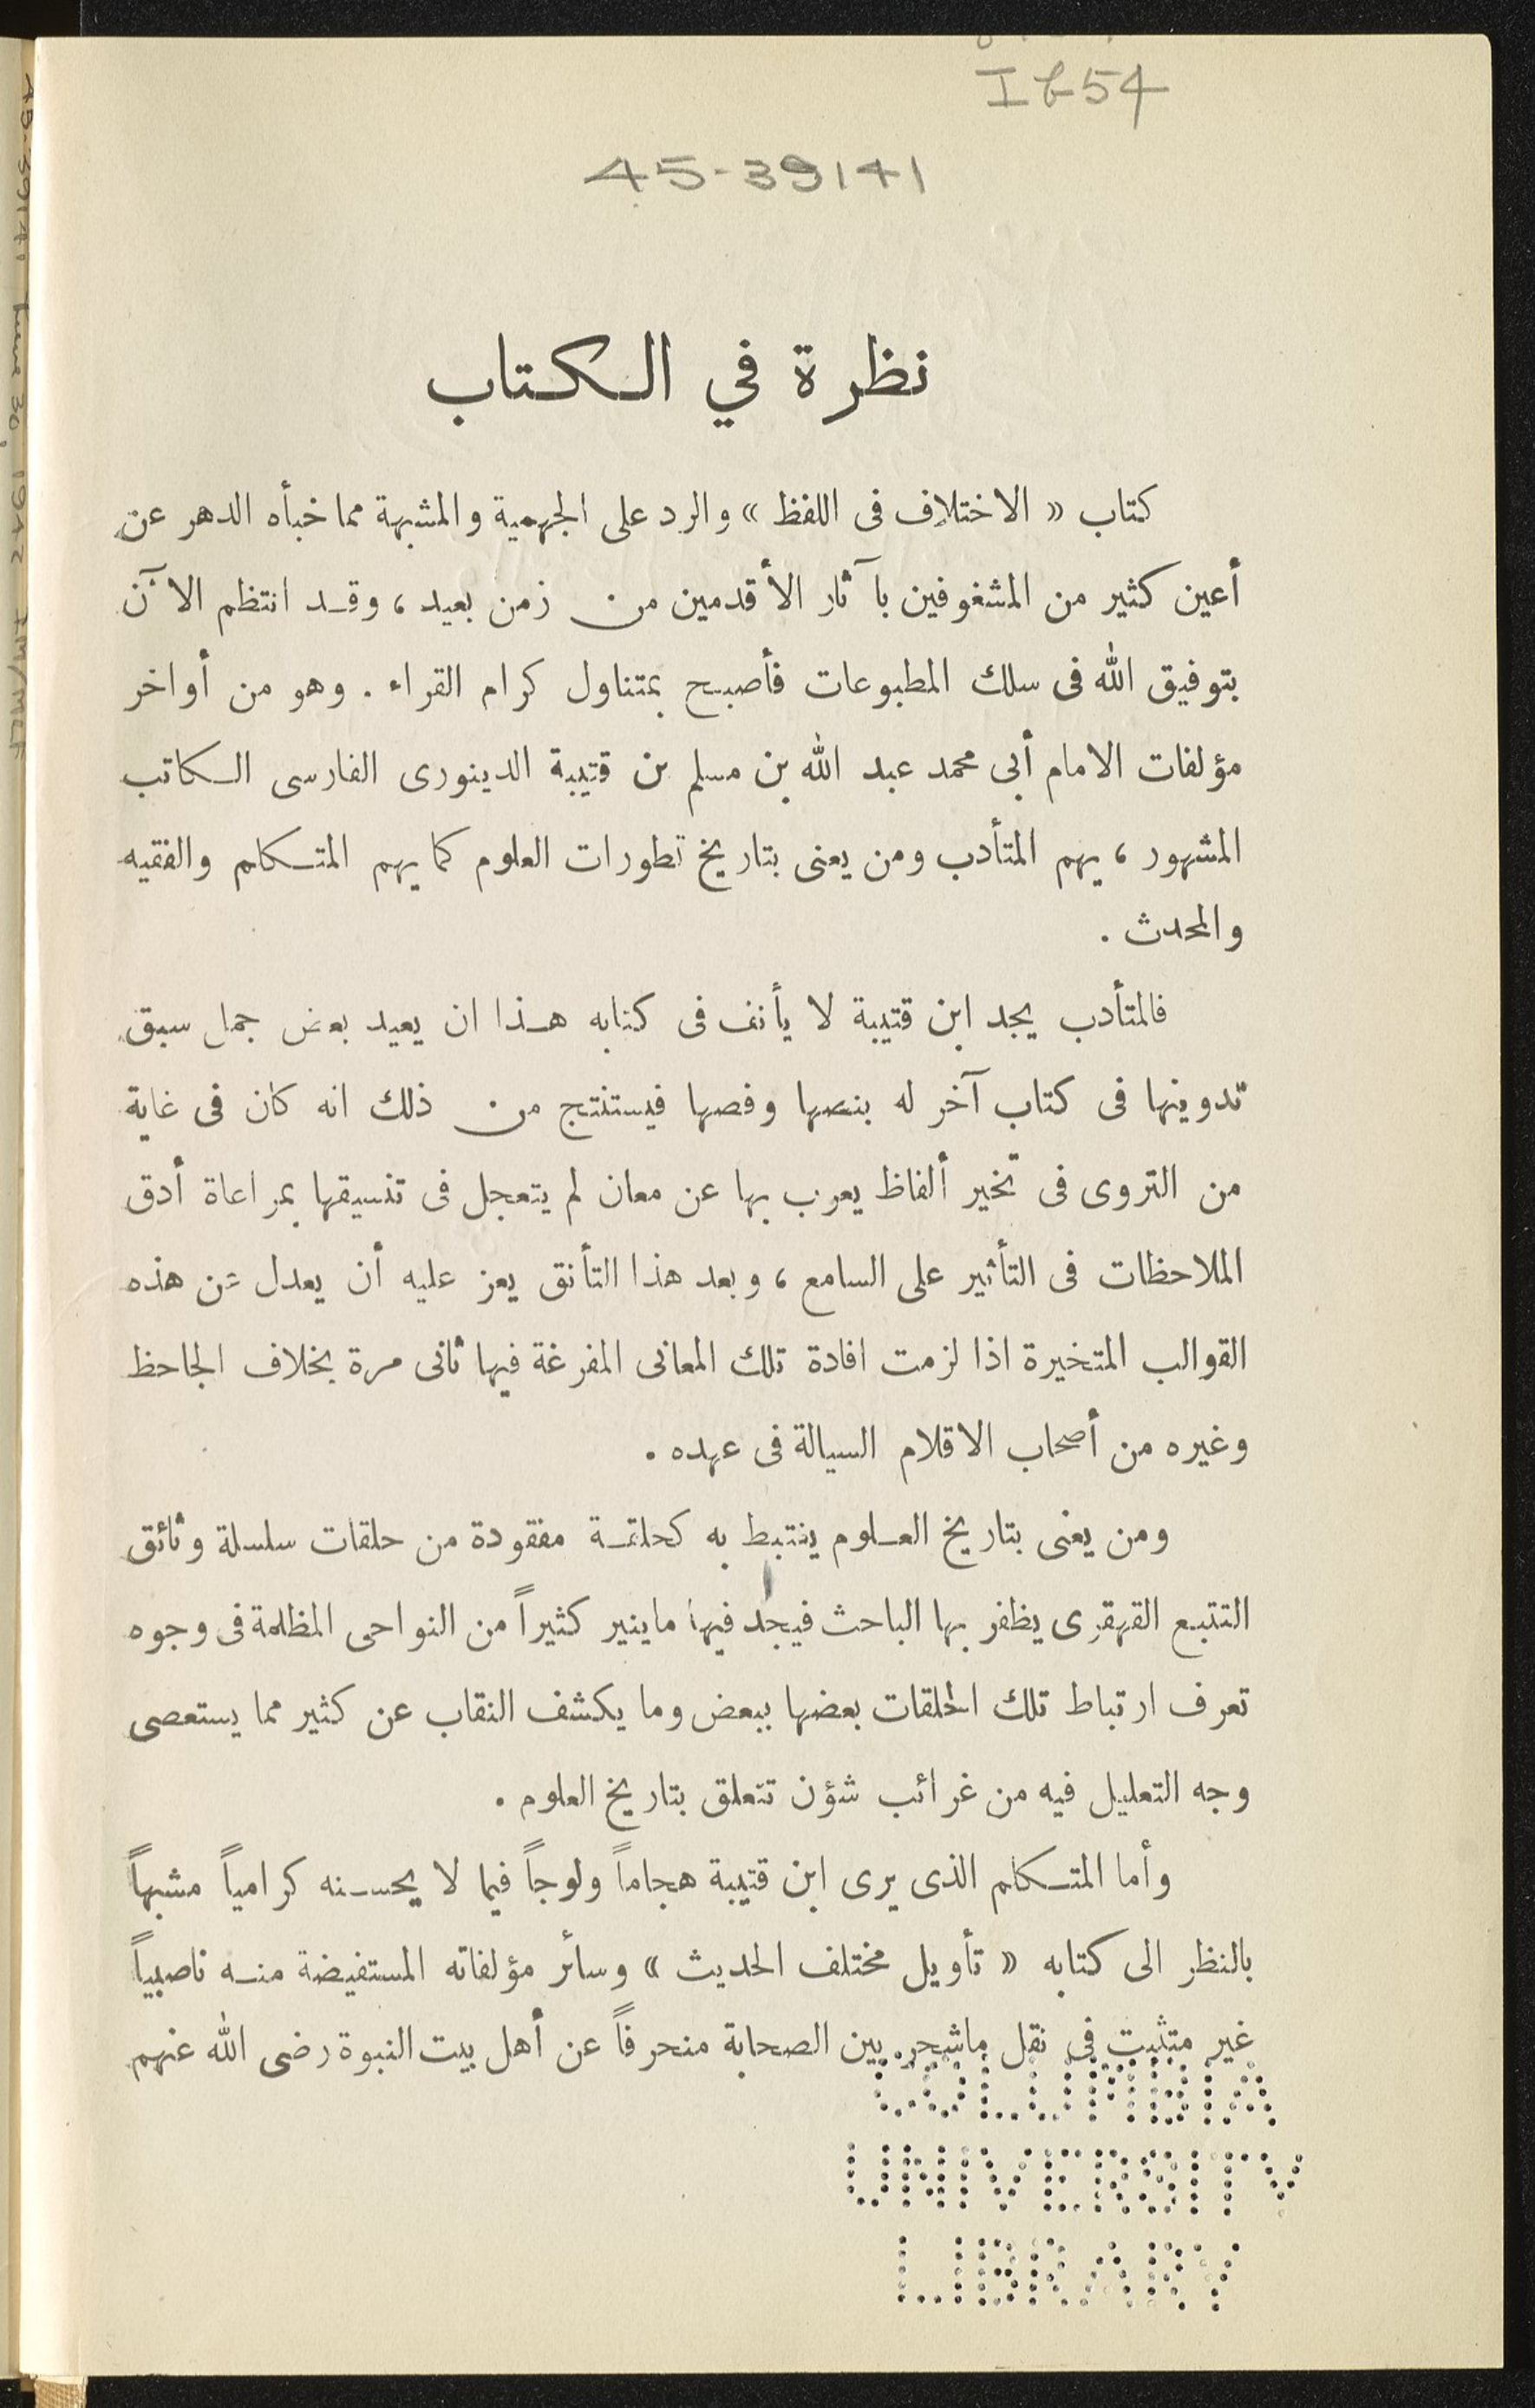 Ib54
45-39141
نظرة في الكتاب
كتاب « الاختلاف فى اللفظ » والرد على الجهمية والمشبهة مما خبأه الدهر عن
أعين كثير من المشغوفين بآثار الأقدمين من زمن بعيد ، وقد انتظم الآن
بتوفيق الله فى سلك المطبوعات فأصبح بمتناول كرام القراء . وهو من أواخر
مؤلفات الامام أبى محمد عبد الله بن مسلم بن قتيبة الدينورى الفارسى الكاتب
المشهور ، يهم المتأدب ومن يعنى بتاريخ تطورات العلوم كما يهم المتكلم والفقيه
والمحدث .
فالمتأدب يجد ابن قتيبة لا يأنف فى كتابه هذا ان يعيد بعض جمل سبق
تدوينها فى كتاب آخر له بنصها وفصها فيستنتج من ذلك انه كان فى غاية
من التروى فى تخير ألفاظ يعرب بها عن معان لم يتعجل فى تنسيقها بمراعاة أدق
الملاحظات فى التأثير على السامع ، وبعد هذا التأنق يعز عليه أن يعدل عن هذه
القوالب المتخيرة اذا لزمت افادة تلك المعانى المفرغة فيها ثانى مرة بخلاف الجاحظ
وغيره من أصحاب الاقلام السيالة فى عهده .
ومن يعنى بتاريخ العلوم يغتبط به كحلقة مفقودة من حلقات سلسلة وثائق
التتبع القهقرى يظفر بها الباحث فيجد فيها ماينير كثيراً من النواحى المظلمة فى وجوه
تعرف ارتباط تلك الحلقات بعضها ببعض وما يكشف النقاب عن كثير مما يستعصى
وجه التعليل فيه من غرائب شؤن تتعلق بتاريخ العلوم .
وأما المتكلم الذى يرى ابن قتيبة هجاماً ولوجاً فيما لا يحسنه كرامياً مشبهاً
بالنظر الى كتابه « تأويل مختلف الحديث » وسائر مؤلفاته المستفيضة منه ناصبياً
غير متثبت فى نقل ماشجر بين الصحابة منحرفاً عن أهل بيت النبوة رضى الله عنهم
COLUMBIA
UNIVERSITY
LIBRARY